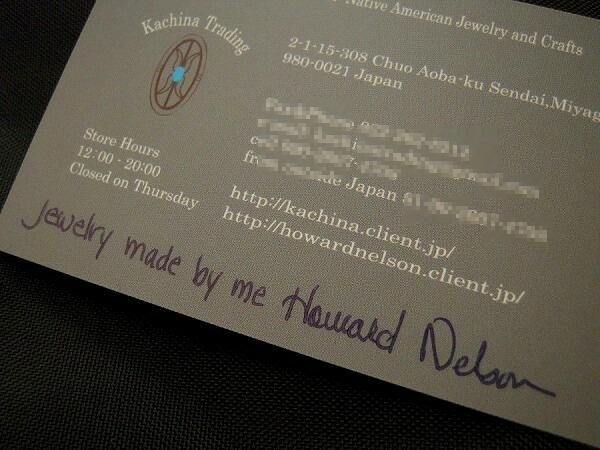 Kachina Trading
Native American Jewelry and Crafts
2-1-15-308 Chuo Aoba-ku Sendai,Miyag
980-0021 Japan
from outside Japan
Store Hours
12:00 - 20:00
Closed on Thursday
http://kachina.client.jp/
http://howardnelson.client.jp/
Jewelry made by me Howard Nelson